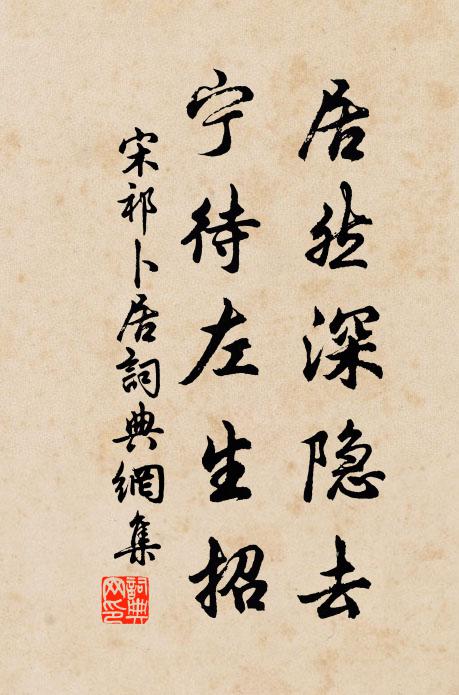 居然深隐去
宁待左生招
宋祁卜居詞典網集
詞典
网印